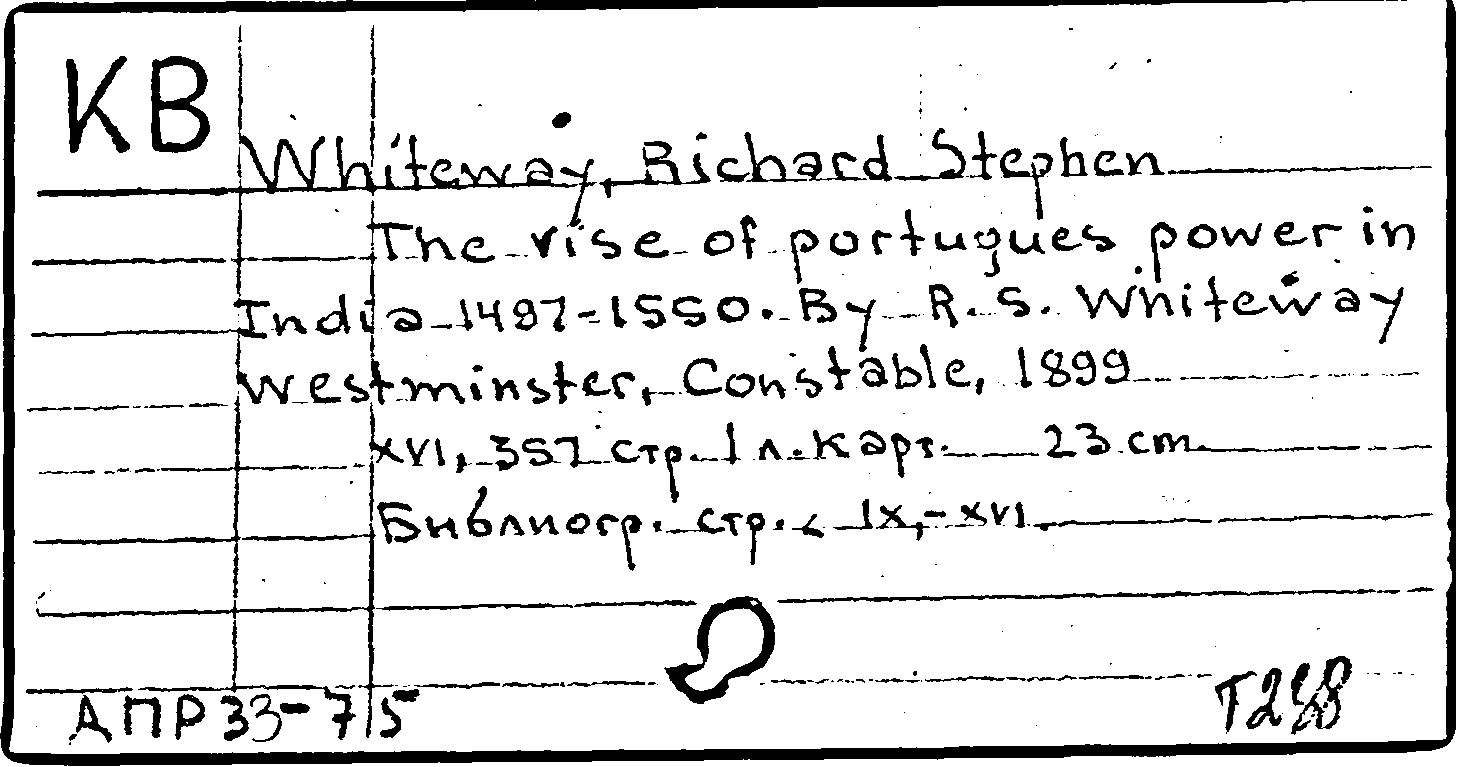 КВ
Whiteway, Richard Stephen
The rise of portugues power in
India 1497-1550. By R. S. Whiteway
Westminster, Constable, 1899
XVI, 357 стр. 1 л. карт. 23 cm.
Библиогр. стр. IX,-XVI.
АПР 33-715